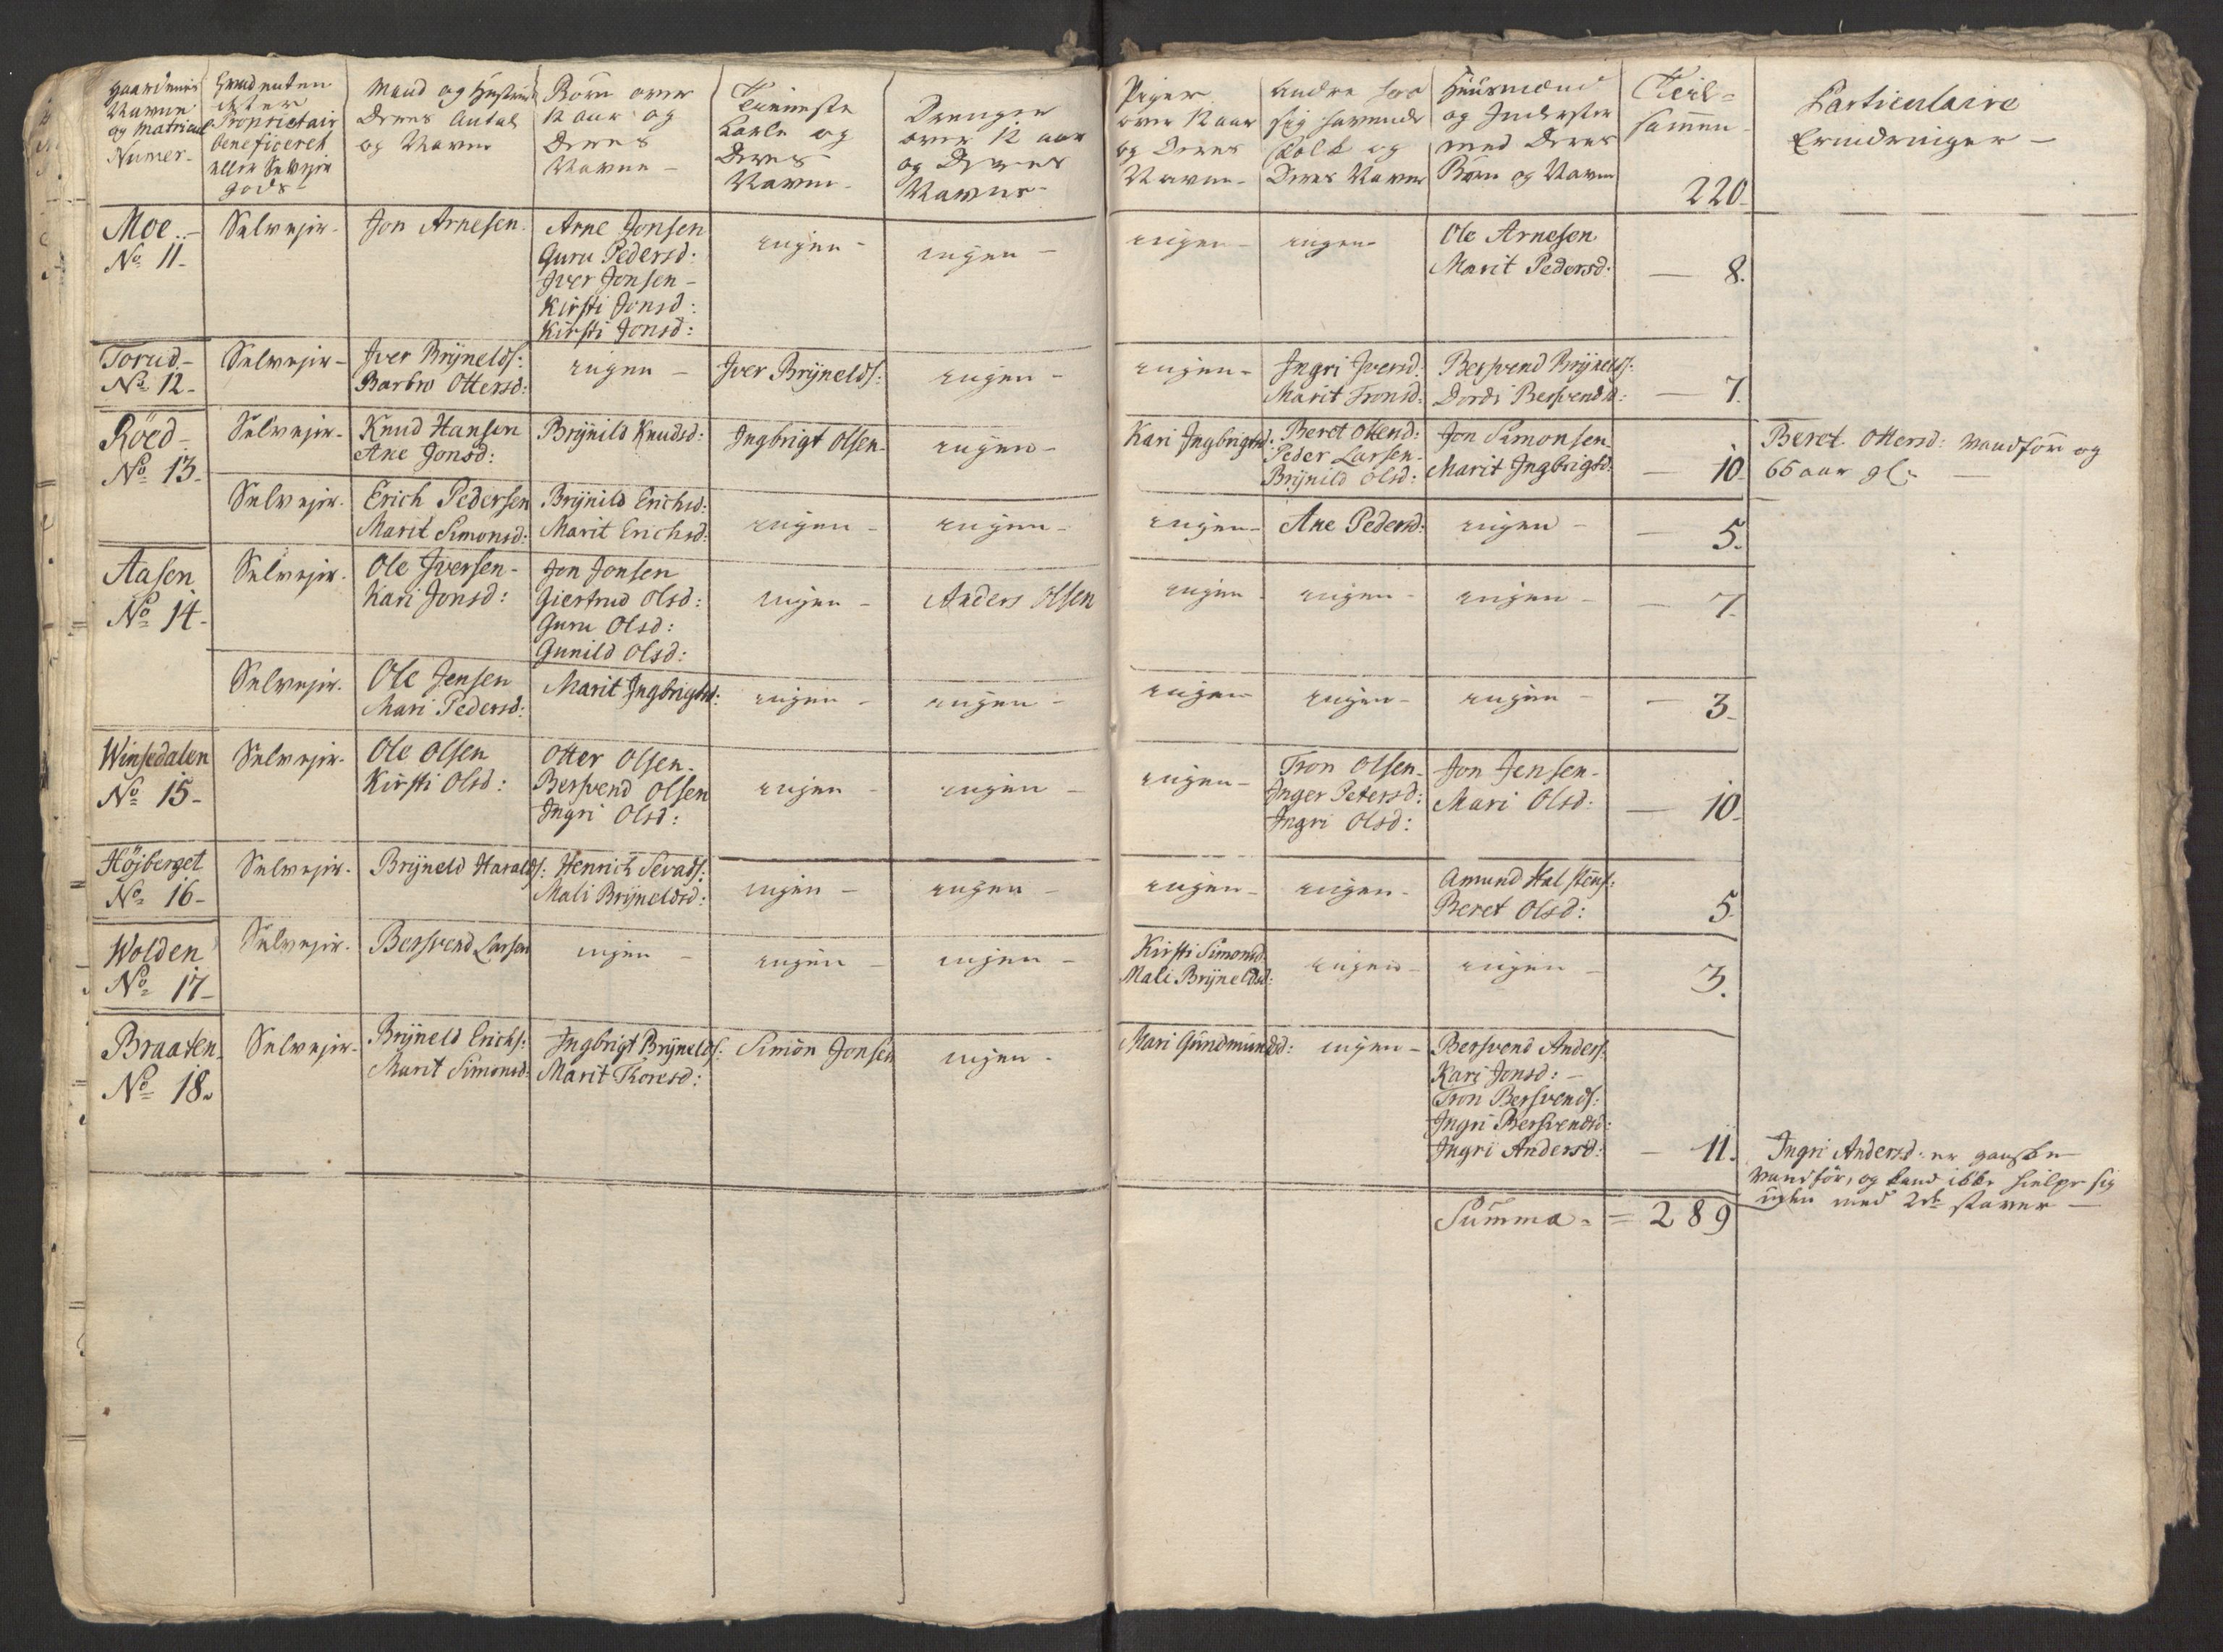 Gaardenes
Navne
og Matricul
Numer-
Grund enten
det er
Proprietair
beneficeret
eller Selvejer
gods
Mand og Hustrue
Deres Antal
og Navne
Börn over
12 aar og
Deres
Navne -
Tienneste
Karle og
Deres
Navne -
Drenge
over 12 aar
og Deres
Navne -
Piger
over 12 aar
og Deres
Navne -
Andre for
sig havende
folk og
Deres Navne
Huusmænd
og Inderster
med Deres
Börn og Navne
Til=
sammen -
220 -
Particulaire
Erindringer -
Moe -
No 11 -
Selvejer -
Jon Arnesen -
Arne Jonsen
Guru Pedersd:
Iver Jonsen -
Kirsti Jonsd:
Kirsti Jonsd:
ingen -
ingen -
ingen -
ingen -
Ole Arnesen
Marit Pedersd:
- 8.
Torud -
No 12 -
Selvejer -
Iver Brÿnelds:
Barbro Ottersd:
ingen -
Iver Brÿnelds:
ingen -
ingen -
Ingri Iversd:
Marit Tronsd:
Bersvend Brÿnelds:
Dordi Bersvendsd:
- 7.
Röed -
No 13 -
Selvejer -
Knud Hansen
Ane Jonsd:
Brÿnild Knudsd:
Ingbrigt Olsen -
ingen -
Kari Ingbrigtsd:
Beret Ottersd:
Peder Larsen -
Brÿnild Olsd:
Jon Simonsen
Marit Ingbrigtsd:
- 10 -
Beret Ottersd: vandför og
66 aar gl: -
Selvejer -
Erich Pedersen
Marit Simonsd:
Brÿnild Erichsd:
Marit Erichsd:
ingen -
ingen -
ingen -
Ane Pedersd:
ingen -
- 5.
Aasen
No 14 -
Selvejer -
Ole Iversen -
Kari Jonsd:
Jon Jonsen
Giertrud Olsd:
Guru Olsd:
Gunild Olsd:
ingen -
Anders Olsen
ingen -
ingen -
ingen -
- 7.
Selvejer -
Ole Jensen
Mari Pedersd:
Marit Ingbrigtsd:
ingen -
ingen -
ingen
ingen -
ingen -
- 3 -
Winsedalen
No 15 -
Selvejer -
Ole Olsen
Kirsti Olsd:
Otter Olsen -
Bersvend Olsen
Ingri Olsd:
ingen -
ingen -
ingen -
Tron Olsen -
Inger Petersd:
Ingri Olsd:
Jon Jensen -
Mari Olsd:
- 10 -
Höjberget
No 16 -
Selvejer -
Brÿneld Haralds:
Henrich Sevads:
Mali Brÿneldsd:
ingen -
ingen -
ingen -
ingen -
Amund Halstens:
Beret Olsd:
5 -
Wolden
No 17 -
Selvejer -
Bersvend Larsen
ingen -
ingen -
ingen -
Kirsti Simonsd:
Mali Brÿneldsd:
ingen -
ingen -
3.
Braaten
No 18 -
Selvejer -
Brÿneld Erichs:
Marit Simonsd:
Ingbrigt Brÿnelds:
Marit Thoresd:
Simon Jonsen
ingen -
Mari Gundmundsd:
ingen -
Bersvend Anders:
Kari Jonsd: -
Tron Bersvends:
Ingri Bersvendsd:
Ingri Andersd:
- 11.
Ingri Andersd: er ganske
vandför, og kand ikke hielpe sig
uden med 2de staver -
Summa - = 289